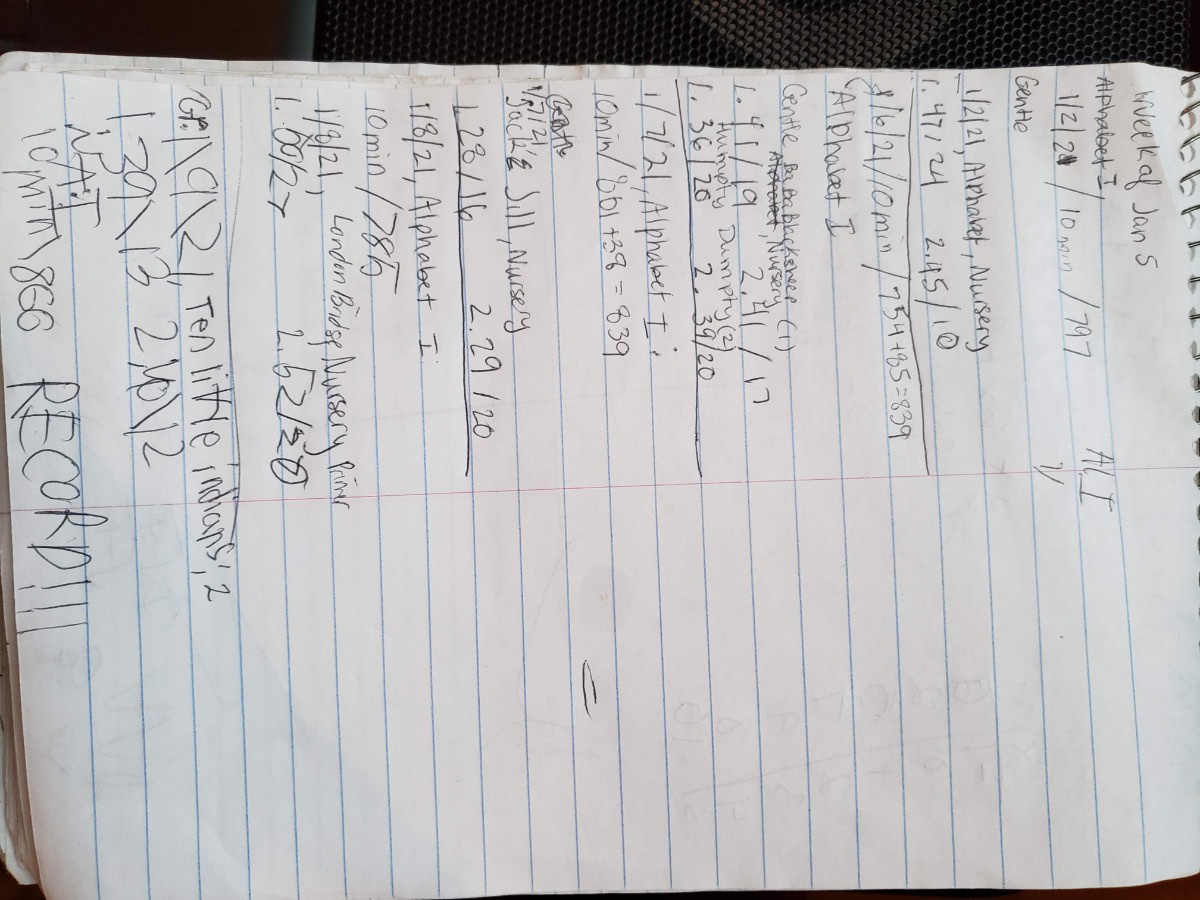 Week of Jan 5
Alphabet I
1/2/21 / 10 min / 797 ALI
Gentle
1/2/21, Alphabet, Nursery
1. 47/24 2. 45/10
1/6/21/10min / 754+85=839
Alphabet I
Gentle Baba blacksheep (1)
Nursery
1. 41/19 2. 41/17
Humpty Dumpty (2)
1. 36/26 2. 39/20
1/7/21, Alphabet I.
10min/801+38=839
Gentle
1/7/21
Jack & Jill, Nursery
1. 28/16 2. 29/20
1/8/21, Alphabet I
10min/785
1/8/21, London Bridge, Nursery Primer
2. 52/20
1\9\21, Ten little indians, 2
1 39\13 2 40\12
10min\866 RECORD!!!!